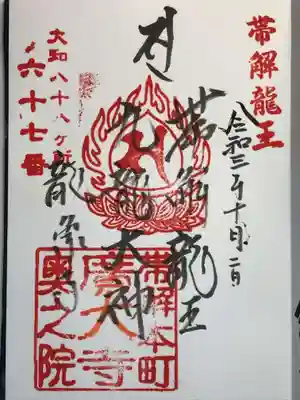 帯解龍王
令和三年十月二日
帯解龍王
九龍大神
龍象寺
大和八十八ヶ所
六十七番
帯解本町
廣大寺
奥之院